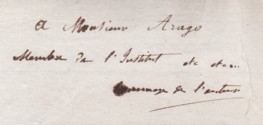 A Monsieur Arago
Membre de l'Institut etc etc..
hommage de l'auteur